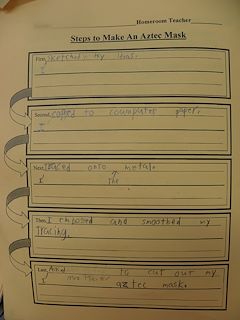 Homeroom Teacher
Steps to Make An Aztec Mask
First, sketched my ideas.
I
Second, copied to coumputer paper.
I
Next, traced onto metal.
I the
Then, I embosed and smoothed my
tracing.
Last, And to cut out my
aztec mask.